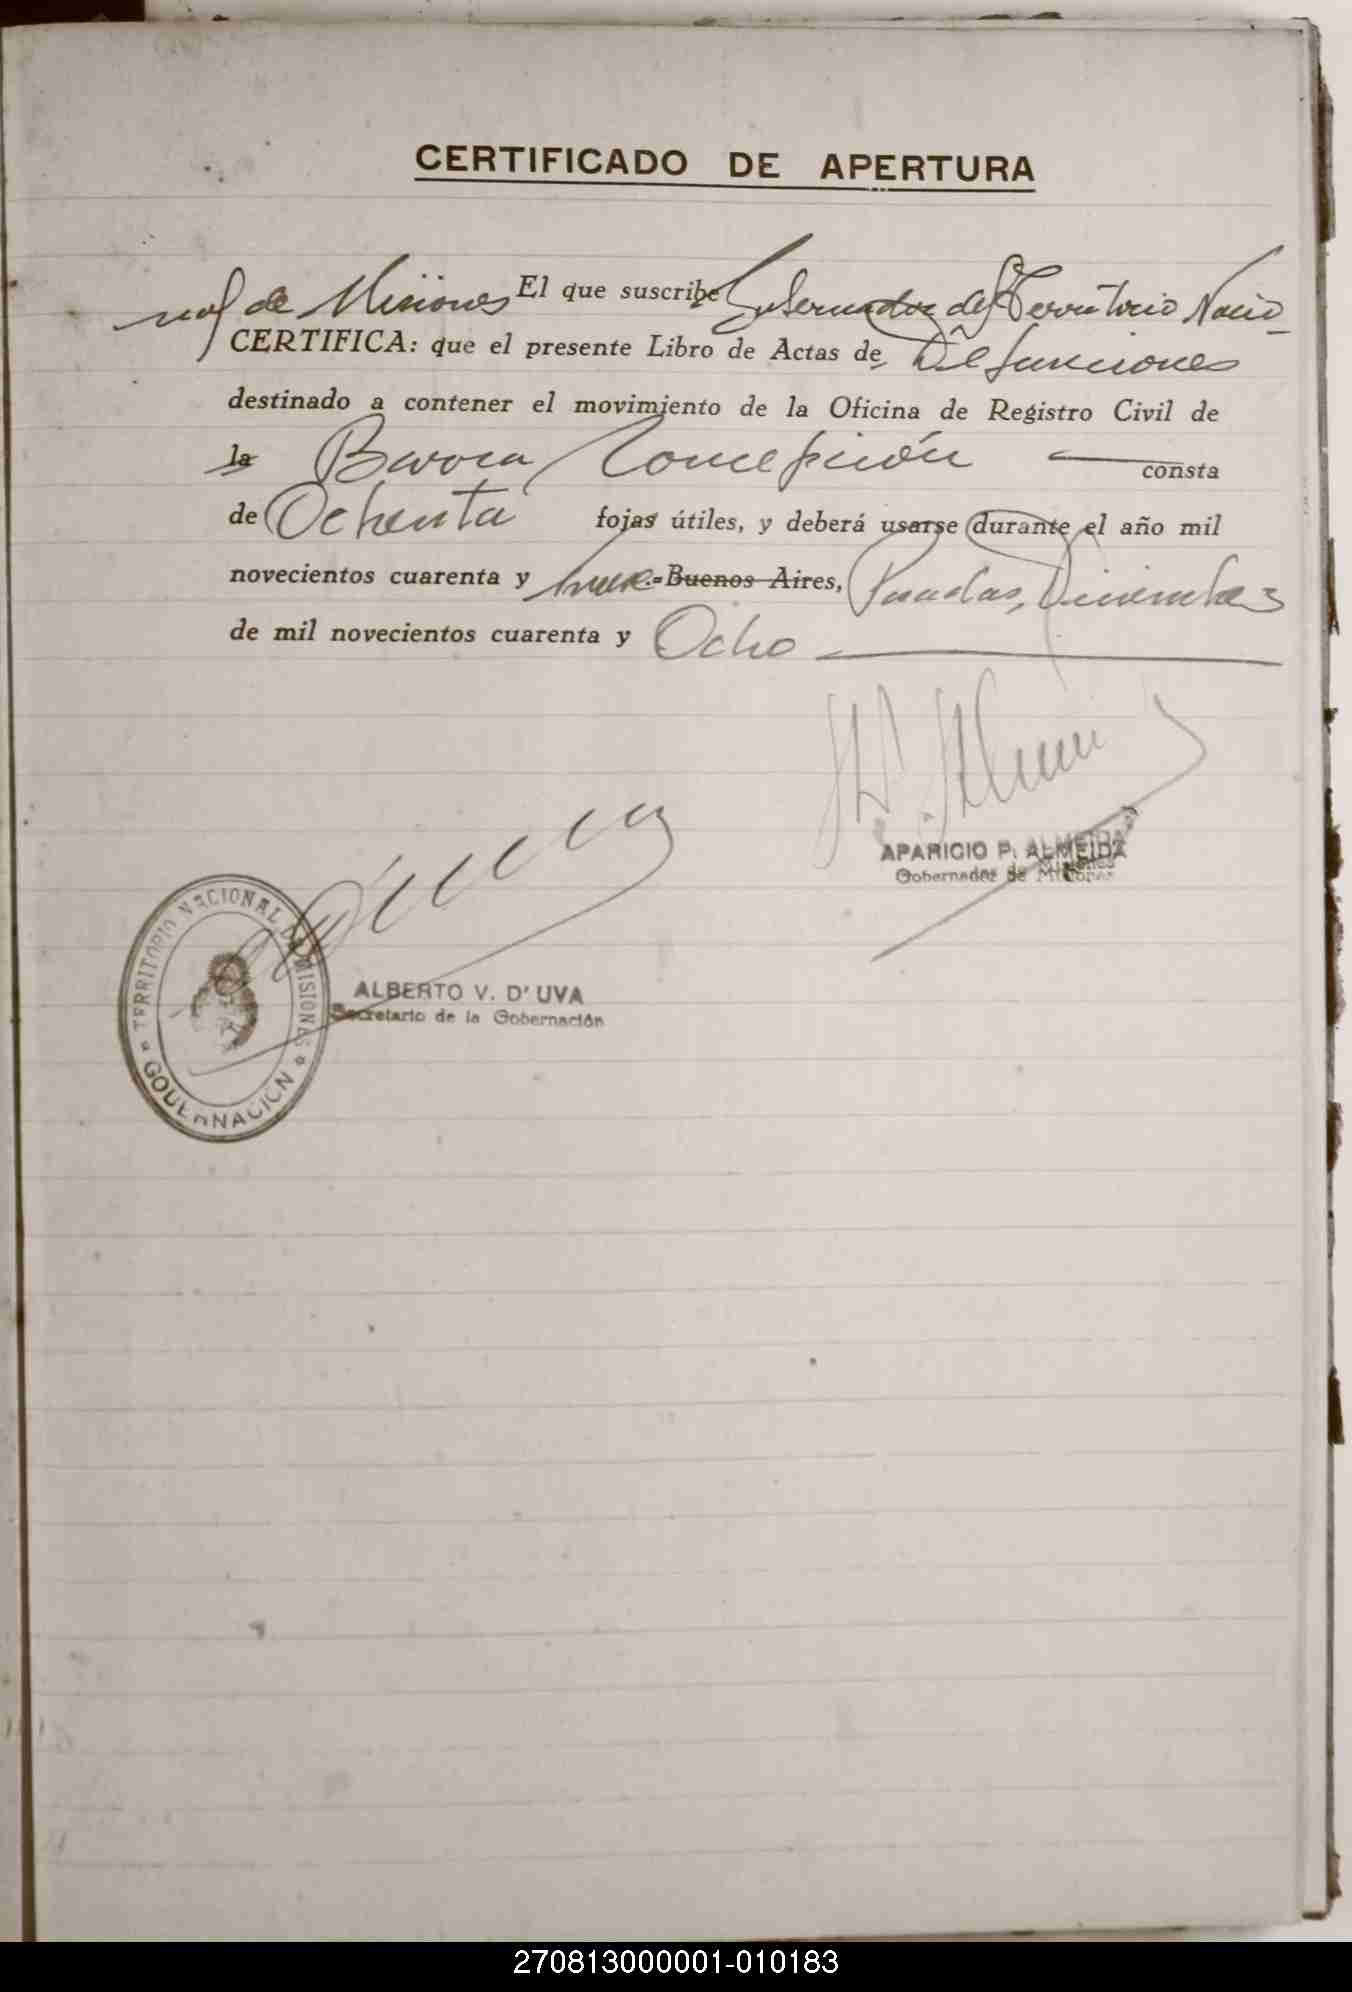 CERTIFICADO DE APERTURA
El que suscribe Gobernador del Territorio Nacio-
nal de Misiones
CERTIFICA: que el presente Libro de Actas de Defunciones
destinado a contener el movimiento de la Oficina de Registro Civil de
la Barra Concepción consta
de Ochenta fojas útiles, y deberá usarse durante el año mil
novecientos cuarenta y nueve.- Buenos Aires, Posadas, Diciembre
de mil novecientos cuarenta y Ocho
APARICIO P. ALMEIDA
Gobernador de Misiones
ALBERTO V. D'UVA
Secretario de la Gobernación
TERRITORIO NACIONAL DE MISIONES
GOBERNACION
270813000001-010183